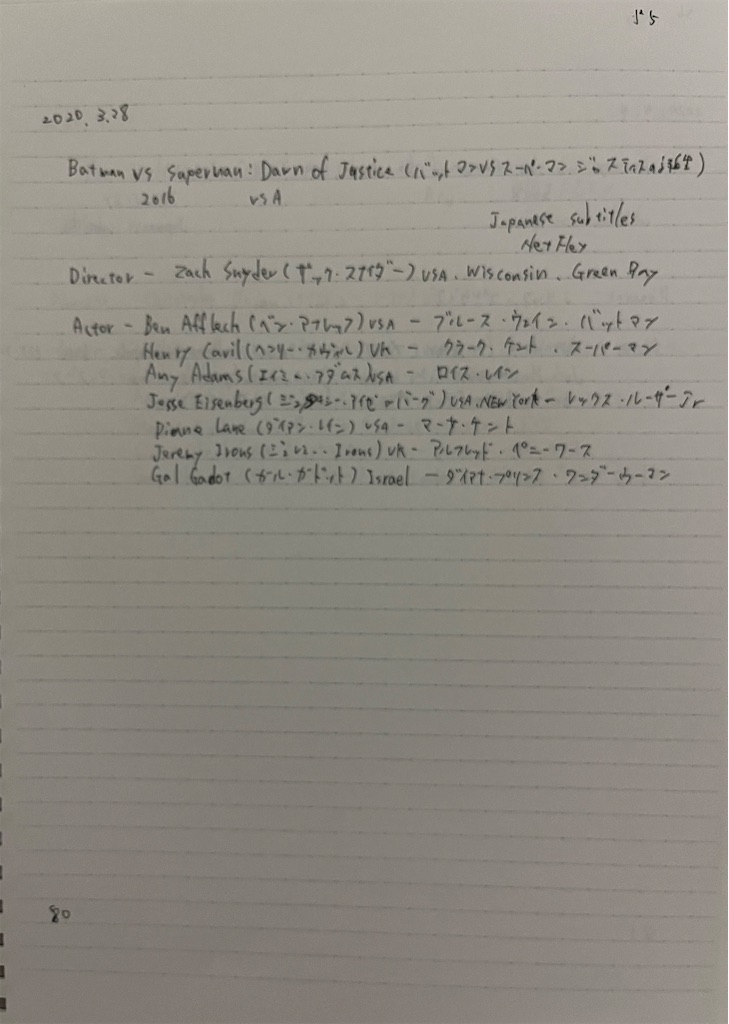 2020.3.28
Batman vs Superman: Dawn of Justice (バットマンVSスーパーマン ジャスティスの誕生)
2016 USA
Japanese subtitles
Netflex
Director - Zach Snyder (ザック・スナイダー) USA. Wisconsin. Green Bay
Actor - Ben Affleck (ベン・アフレック) USA - ブルース・ウェイン・バットマン
Henry Cavil (ヘンリー・カヴィル) UK - クラーク・ケント・スーパーマン
Amy Adams (エイミー・アダムス) USA - ロイス・レイン
Jesse Eisenberg (アイゼンバーグ) USA. NEW York - レックス・ルーザー Jr
Diane Lane (ダイアン・レイン) USA - マーサ・ケント
Jeremy Irons (Irons) UK - アルフレッド・ペニーワース
Gal Gadot (ガール・ガドット) Israel - ダイアナ・プリンス・ワンダーウーマン
80